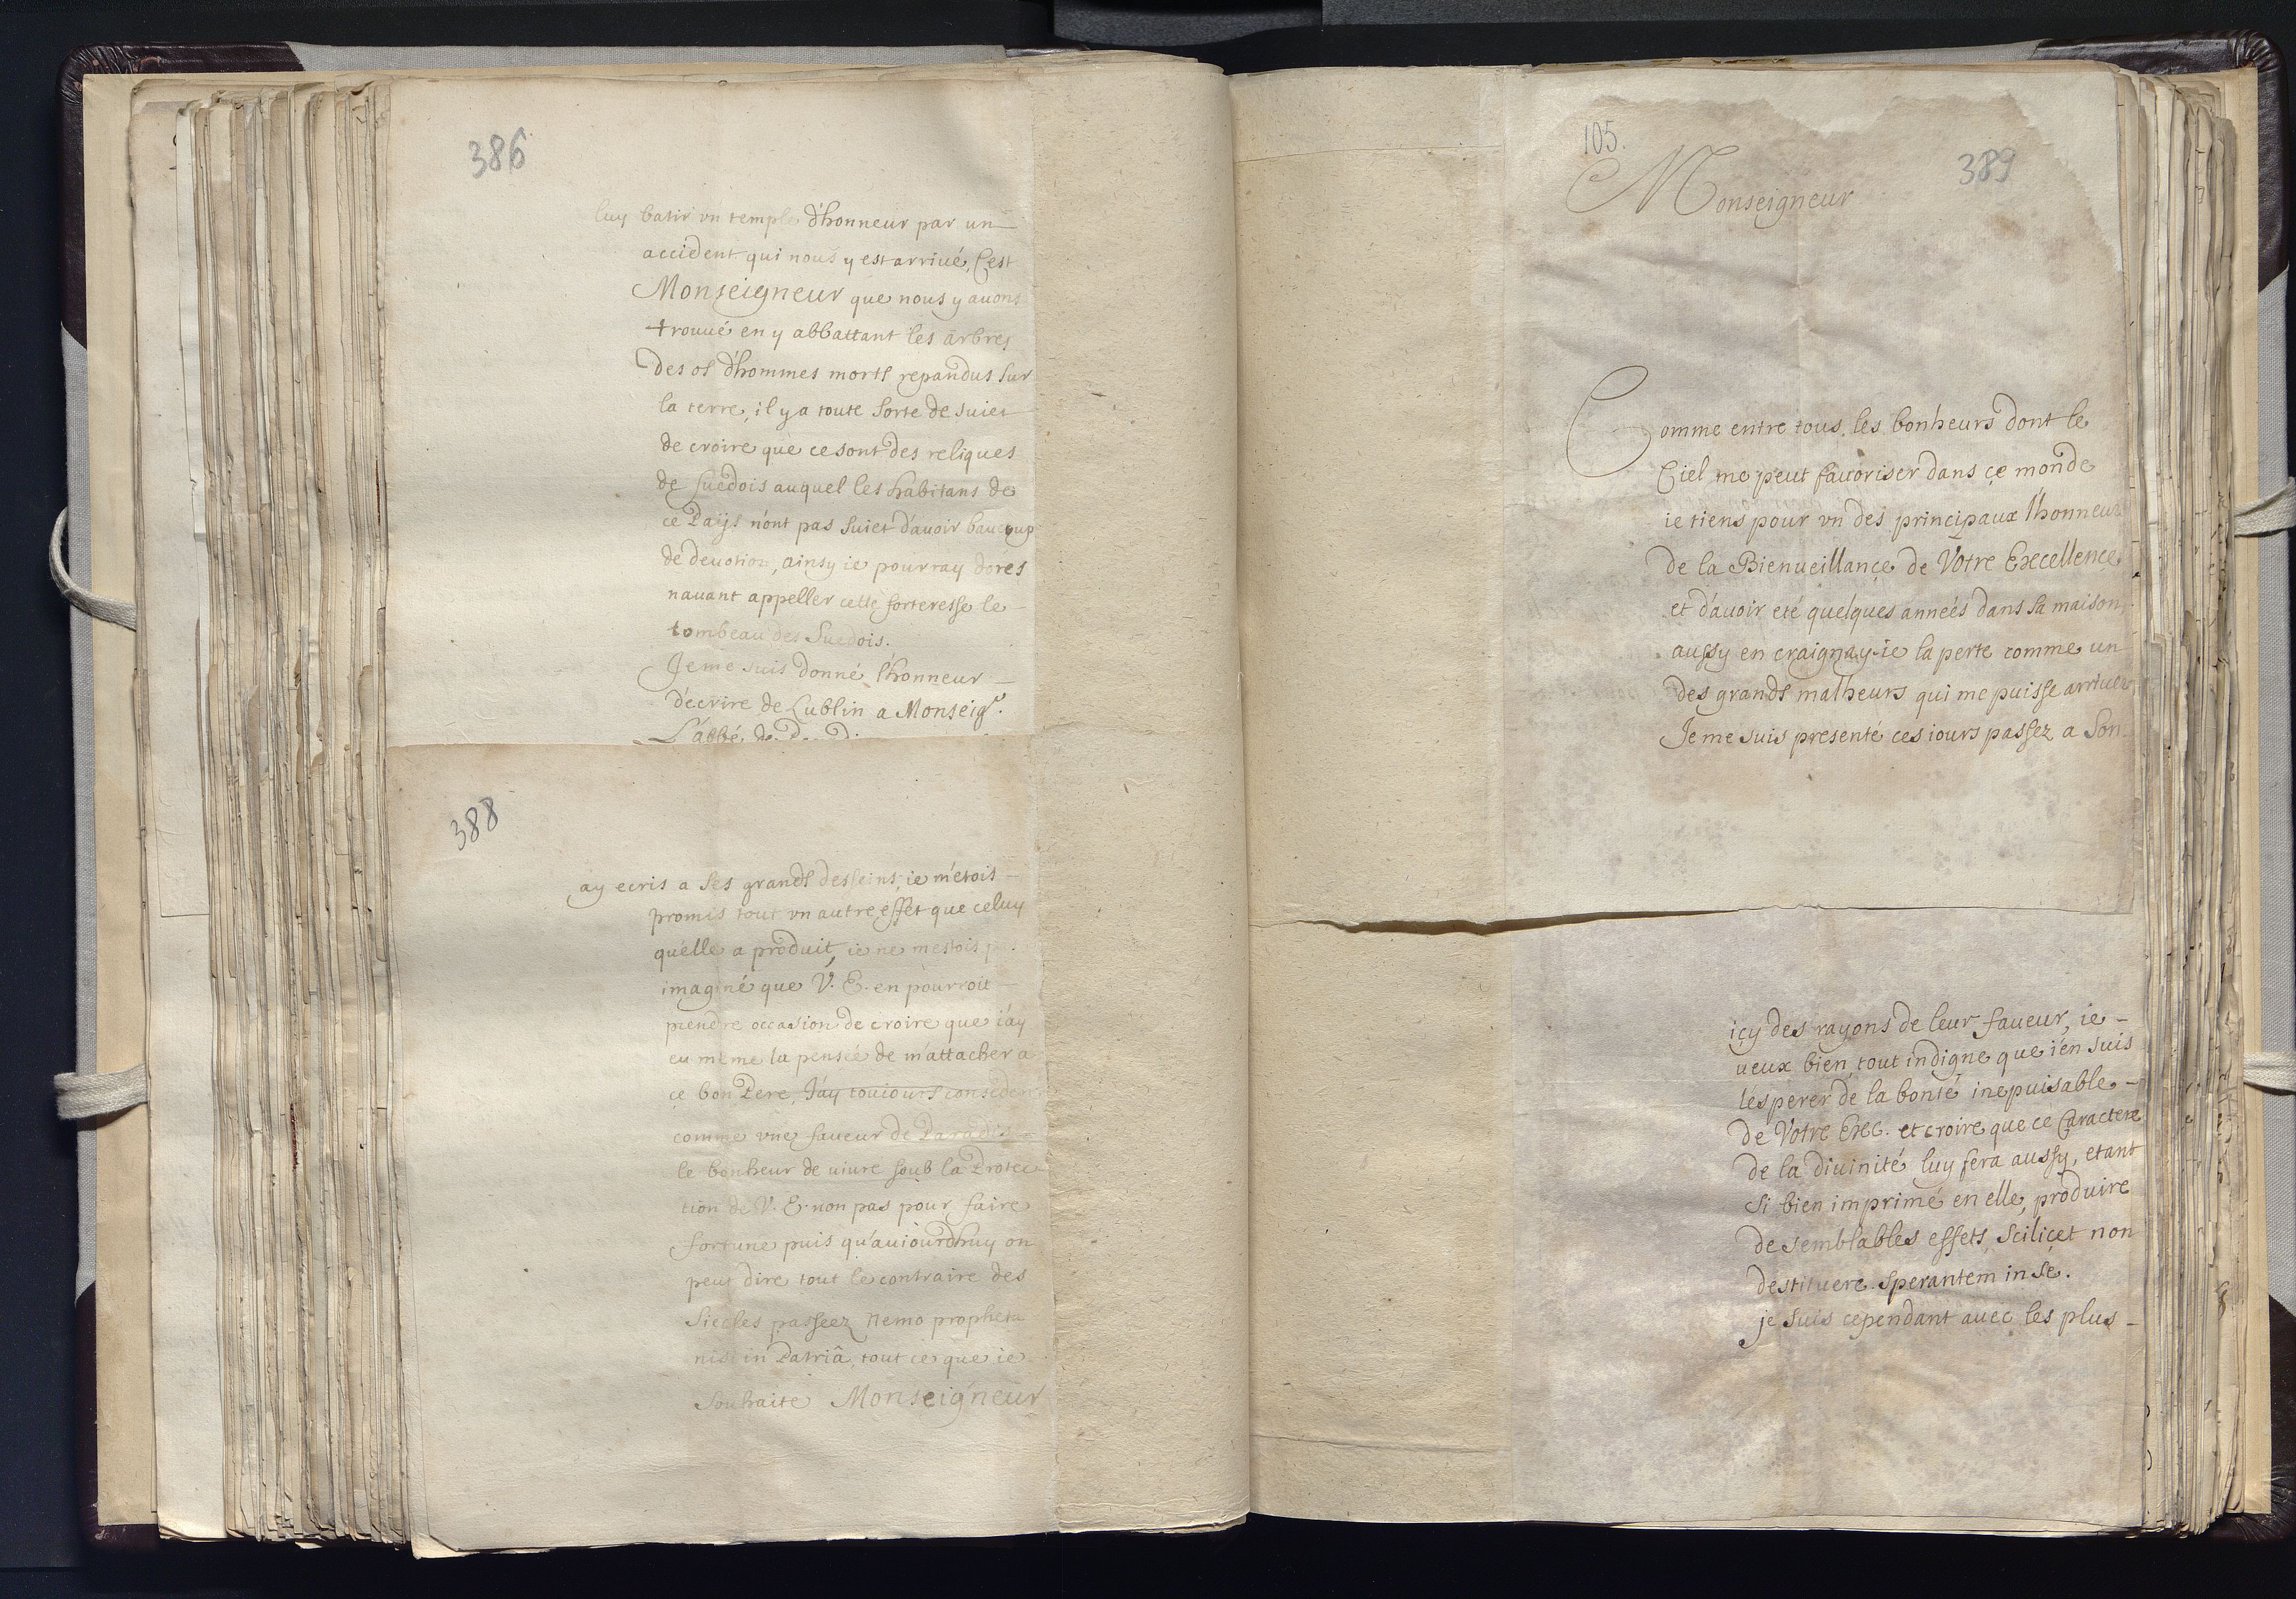 386
luy batir vn temple d'honneur par un
accident qui nous y est arriué, C'est
Monseigneur que nous y auons
trouué en y abbattant les arbres
des os d'hommes morts repandus sur
la terre, il y a toute sorte de suiet
de croire que ce sont des reliques
de suedois auquel les habitans de
ce Païs n'ont pas suiet d'auoir baucoup
de deuotion, ainsy ie pourray dores
nauant appeller cette forteresse le
tombeau des Suedois.
Je me suis donné l'honneur
d'ecrire de Lublin a Monseigr.
L'abbé de
388
ay ecris a ses grands desseins, ie m'etois
promis tout vn autre effet que celuy
qu'elle a produit, ie ne mestois
imaginé que V. E. en pourroit
prendre occasion de croire que i'ay
eu même la pensée de m'attacher a
ce bon Pere, J'ay touiours
comme vne faueur de Paradis
le bonheur de uiure soub la Protec
tion de V. E. non pas pour faire
fortune puis qu'auiourdhuy on
peut dire tout le contraire des
siecles passeez nemo propheta
nisi in Patriâ, tout ce que ie
souhaite Monseigneur
105.
389
Monseigneur
Comme entre tous les bonheurs dont le
Ciel me peut fauoriser dans ce monde
ie tiens pour vn des principaux l'honneur
de la Bienueillance de Votre Excellence
et d'auoir eté quelques années dans sa maison,
aussy en craignay-ie la perte comme un
des grands malheurs qui me puisse arriuer
Je me suis presenté ces iours passez a Son
icy des rayons de leur faueur, ie
ueux bien tout indigne que i'en suis
l'esperer de la bonté inepuisable
de Votre Exc. et croire que ce Caractere
de la diuinité luy fera aussy, etant
si bien imprimé en elle, produire
de semblables effets, scilicet non
destituere sperantem in se.
je suis cependant auec les plus